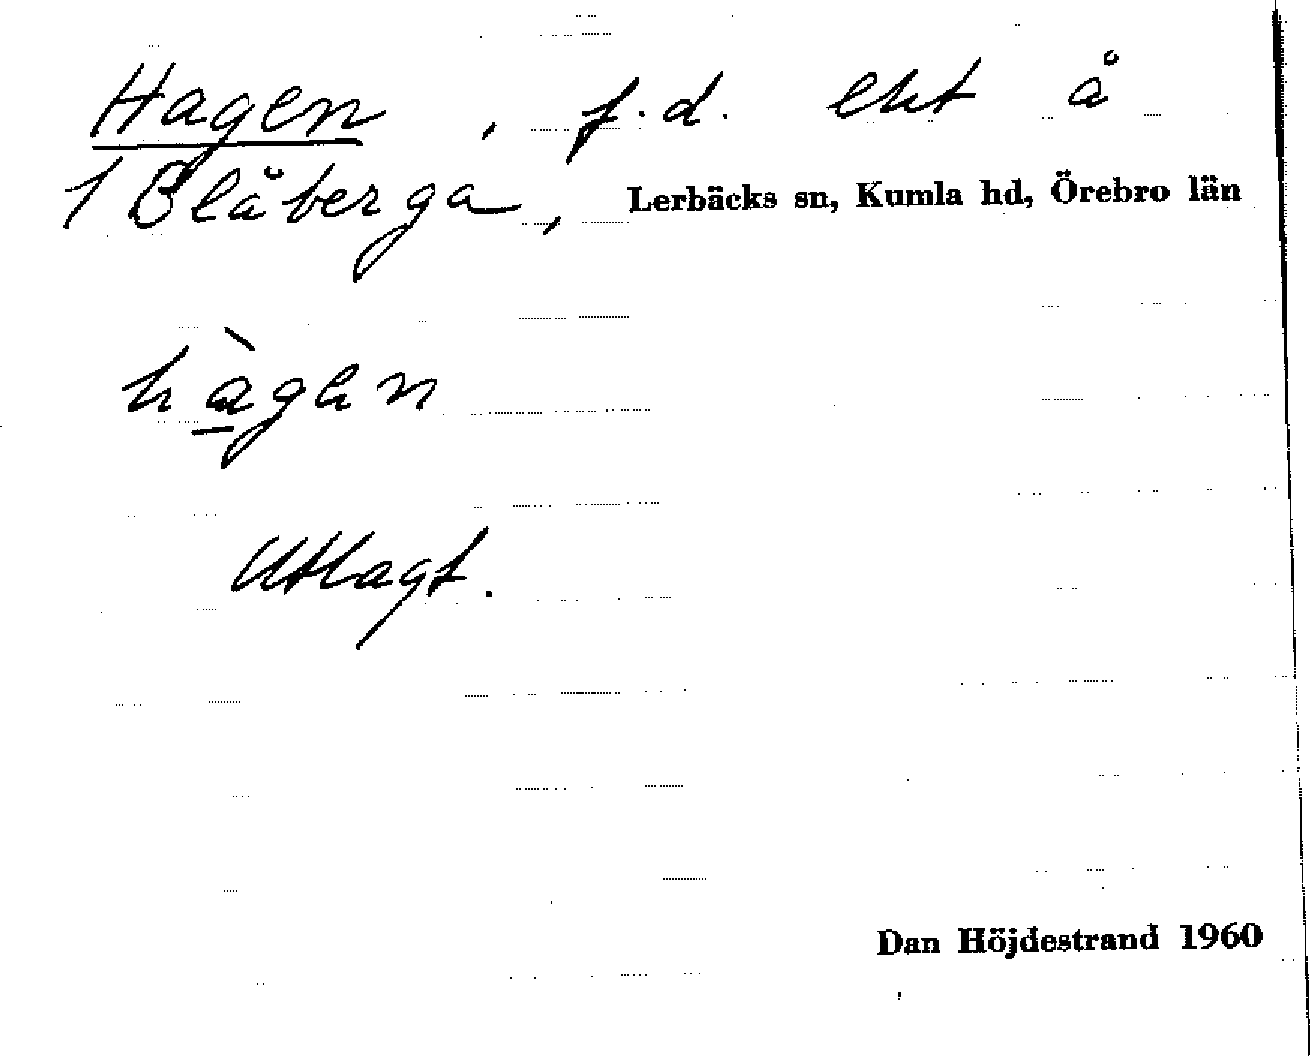 Hagen, f.d. lht å
1 Blåberga, Lerbäcks sn, Kumla hd, Örebro län
hàgen
Utlagt.
Dan Höjdestrand 1960